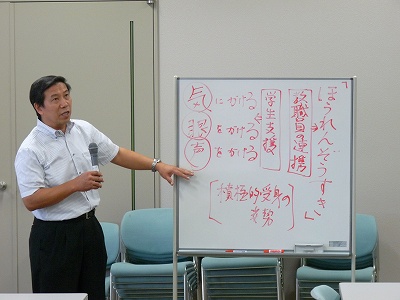 「ほうれんぞうすき」
教職員の連携
学生支援
気にかける
想をかける
声をかける
[積極的受身の
姿勢]